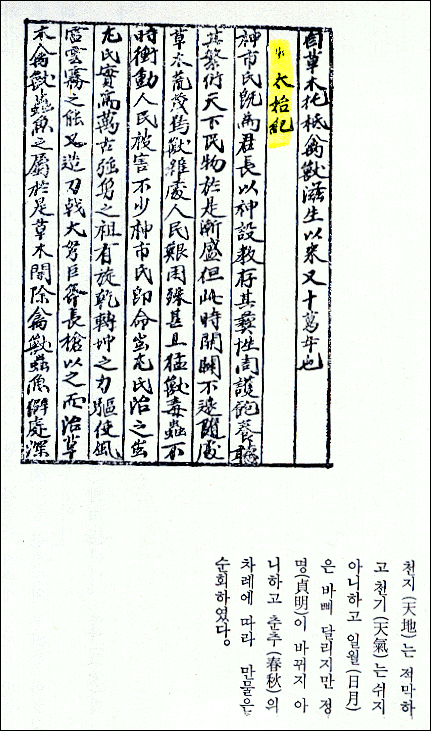 自草木托柢禽獸滋生以來又十萬年也
太始紀
神市氏旣爲君長以神設敎存其彛性周護飽養聽
其繁衍天下民物於是漸盛但此時開闢不遠隨處
草木荒茂鳥獸雜處人民艱困殊甚且猛獸毒蟲不
時衝動人民被害不少神市氏卽命蚩尤氏治之蚩
尤氏實爲萬古强勇之祖有旋乾轉坤之力驅使風
雷雲霧之能又造刀戟大弩巨斧長槍以之而治草
木禽獸蟲魚之屬於是草木開除禽獸蟲魚僻處深
천지(天地)는 적막하
고 천기(天氣)는 쉬지
아니하고 일월(日月)
은 바삐 달리지만 정
명(貞明)이 바뀌지 아
니하고 춘추(春秋)의
차례에 따라 만물은
순회하였다.